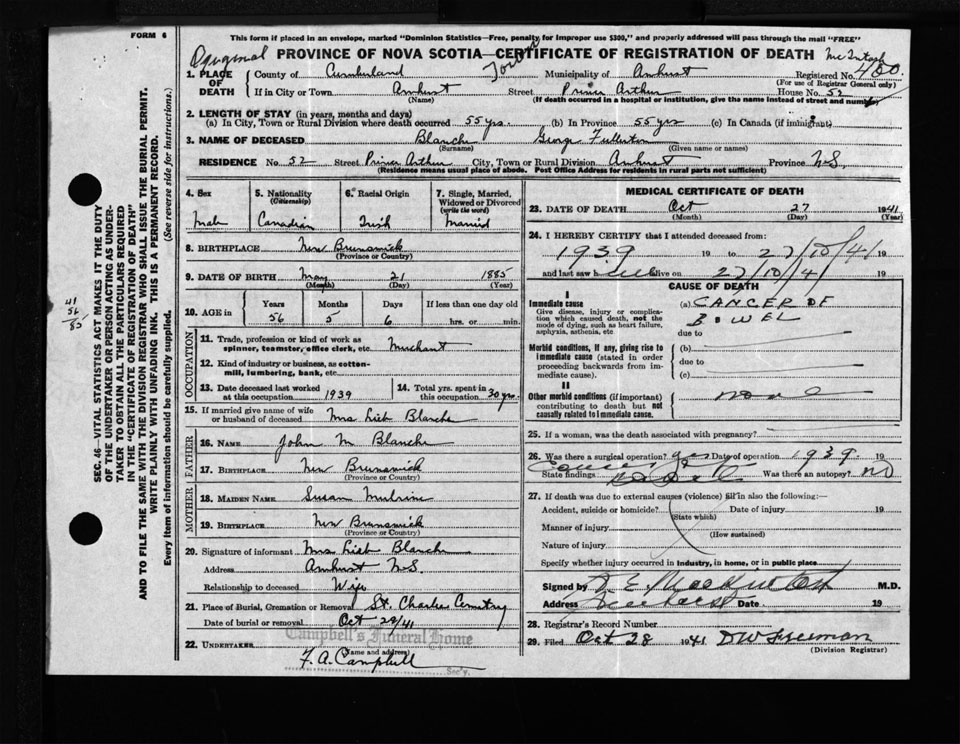 FORM 6
This form if placed in an envelope, marked "Dominion Statistics—Free, penalty for improper use $300," and properly addressed will pass through the mail "FREE"
PROVINCE OF NOVA SCOTIA—CERTIFICATE OF REGISTRATION OF DEATH
1. PLACE OF DEATH County of Cumberland Town Municipality of Amherst Registered No. 400
(For use of Registrar General only)
If in City or Town Amherst Street Prince Arthur House No. 52
(Name) (If death occurred in a hospital or institution, give the name instead of street and number)
2. LENGTH OF STAY (in years, months and days)
(a) In City, Town or Rural Division where death occurred 55 yrs. (b) In Province 55 yrs (c) In Canada (if immigrant)
3. NAME OF DECEASED Blanche George Fullerton
(Surname) (Given name or names)
RESIDENCE No. 52 Street Prince Arthur City, Town or Rural Division Amherst Province N.S.
(Residence means usual place of abode. Post Office Address for residents in rural parts not sufficient)
SEC. 46—VITAL STATISTICS ACT MAKES IT THE DUTY
OF THE UNDERTAKER OR PERSON ACTING AS UNDER-
TAKER TO OBTAIN ALL THE PARTICULARS REQUIRED
IN THE "CERTIFICATE OF REGISTRATION OF DEATH"
AND TO FILE THE SAME WITH THE DIVISION REGISTRAR WHO SHALL ISSUE THE BURIAL PERMIT.
WRITE PLAINLY WITH UNFADING INK. THIS IS A PERMANENT RECORD.
Every item of information should be carefully supplied. (See reverse side for instructions.)
41
56
85
4. Sex 5. Nationality (Citizenship) 6. Racial Origin 7. Single, Married, Widowed or Divorced (write the word)
Male Canadian Irish Married
8. BIRTHPLACE New Brunswick
(Province or Country)
9. DATE OF BIRTH May 21 1885
(Month) (Day) (Year)
10. AGE in Years Months Days If less than one day old
56 5 6 hrs. or min.
OCCUPATION
11. Trade, profession or kind of work as spinner, teamster, office clerk, etc. Merchant
12. Kind of industry or business, as cotton-mill, lumbering, bank, etc.
13. Date deceased last worked at this occupation 1939 14. Total yrs. spent in this occupation 30 yrs.
15. If married give name of wife or husband of deceased Mrs Blanche
FATHER
16. NAME John M Blanche
17. BIRTHPLACE New Brunswick
(Province or Country)
MOTHER
18. MAIDEN NAME Susan
19. BIRTHPLACE New Brunswick
(Province or Country)
20. Signature of informant Mrs Blanche
Address Amherst N.S.
Relationship to deceased Wife
21. Place of Burial, Cremation or Removal St. Charles Cemetry
Date of burial or removal Oct 29/41
Campbell's Funeral Home
22. UNDERTAKER F. A. Campbell
(Name and address)
Sec'y.
MEDICAL CERTIFICATE OF DEATH
23. DATE OF DEATH Oct 27 1941
(Month) (Day) (Year)
24. I HEREBY CERTIFY that I attended deceased from:
1939 19 to 27/10/41 19
and last saw h alive on 27/10/41 19
CAUSE OF DEATH
I
Immediate cause (a) CANCER OF
Give disease, injury or complication which caused death, not the mode of dying, such as heart failure, asphyxia, asthenia, etc. BOWEL
due to
Morbid conditions, if any, giving rise to immediate cause (stated in order proceeding backwards from immediate cause). (b)
due to
(c)
II
Other morbid conditions (if important) contributing to death but not causally related to immediate cause. none
25. If a woman, was the death associated with pregnancy?
26. Was there a surgical operation? yes Date of operation 1939 19
State findings Cancer of Bowel Was there an autopsy? NO
27. If death was due to external causes (violence) fill in also the following:—
Accident, suicide or homicide? Date of injury 19
(State which)
Manner of injury
(How sustained)
Nature of injury
Specify whether injury occurred in industry, in home, or in public place
Signed by M.D.
Address Amherst Date 19
28. Registrar's Record Number
29. Filed Oct 28 1941 D W Freeman
(Division Registrar)